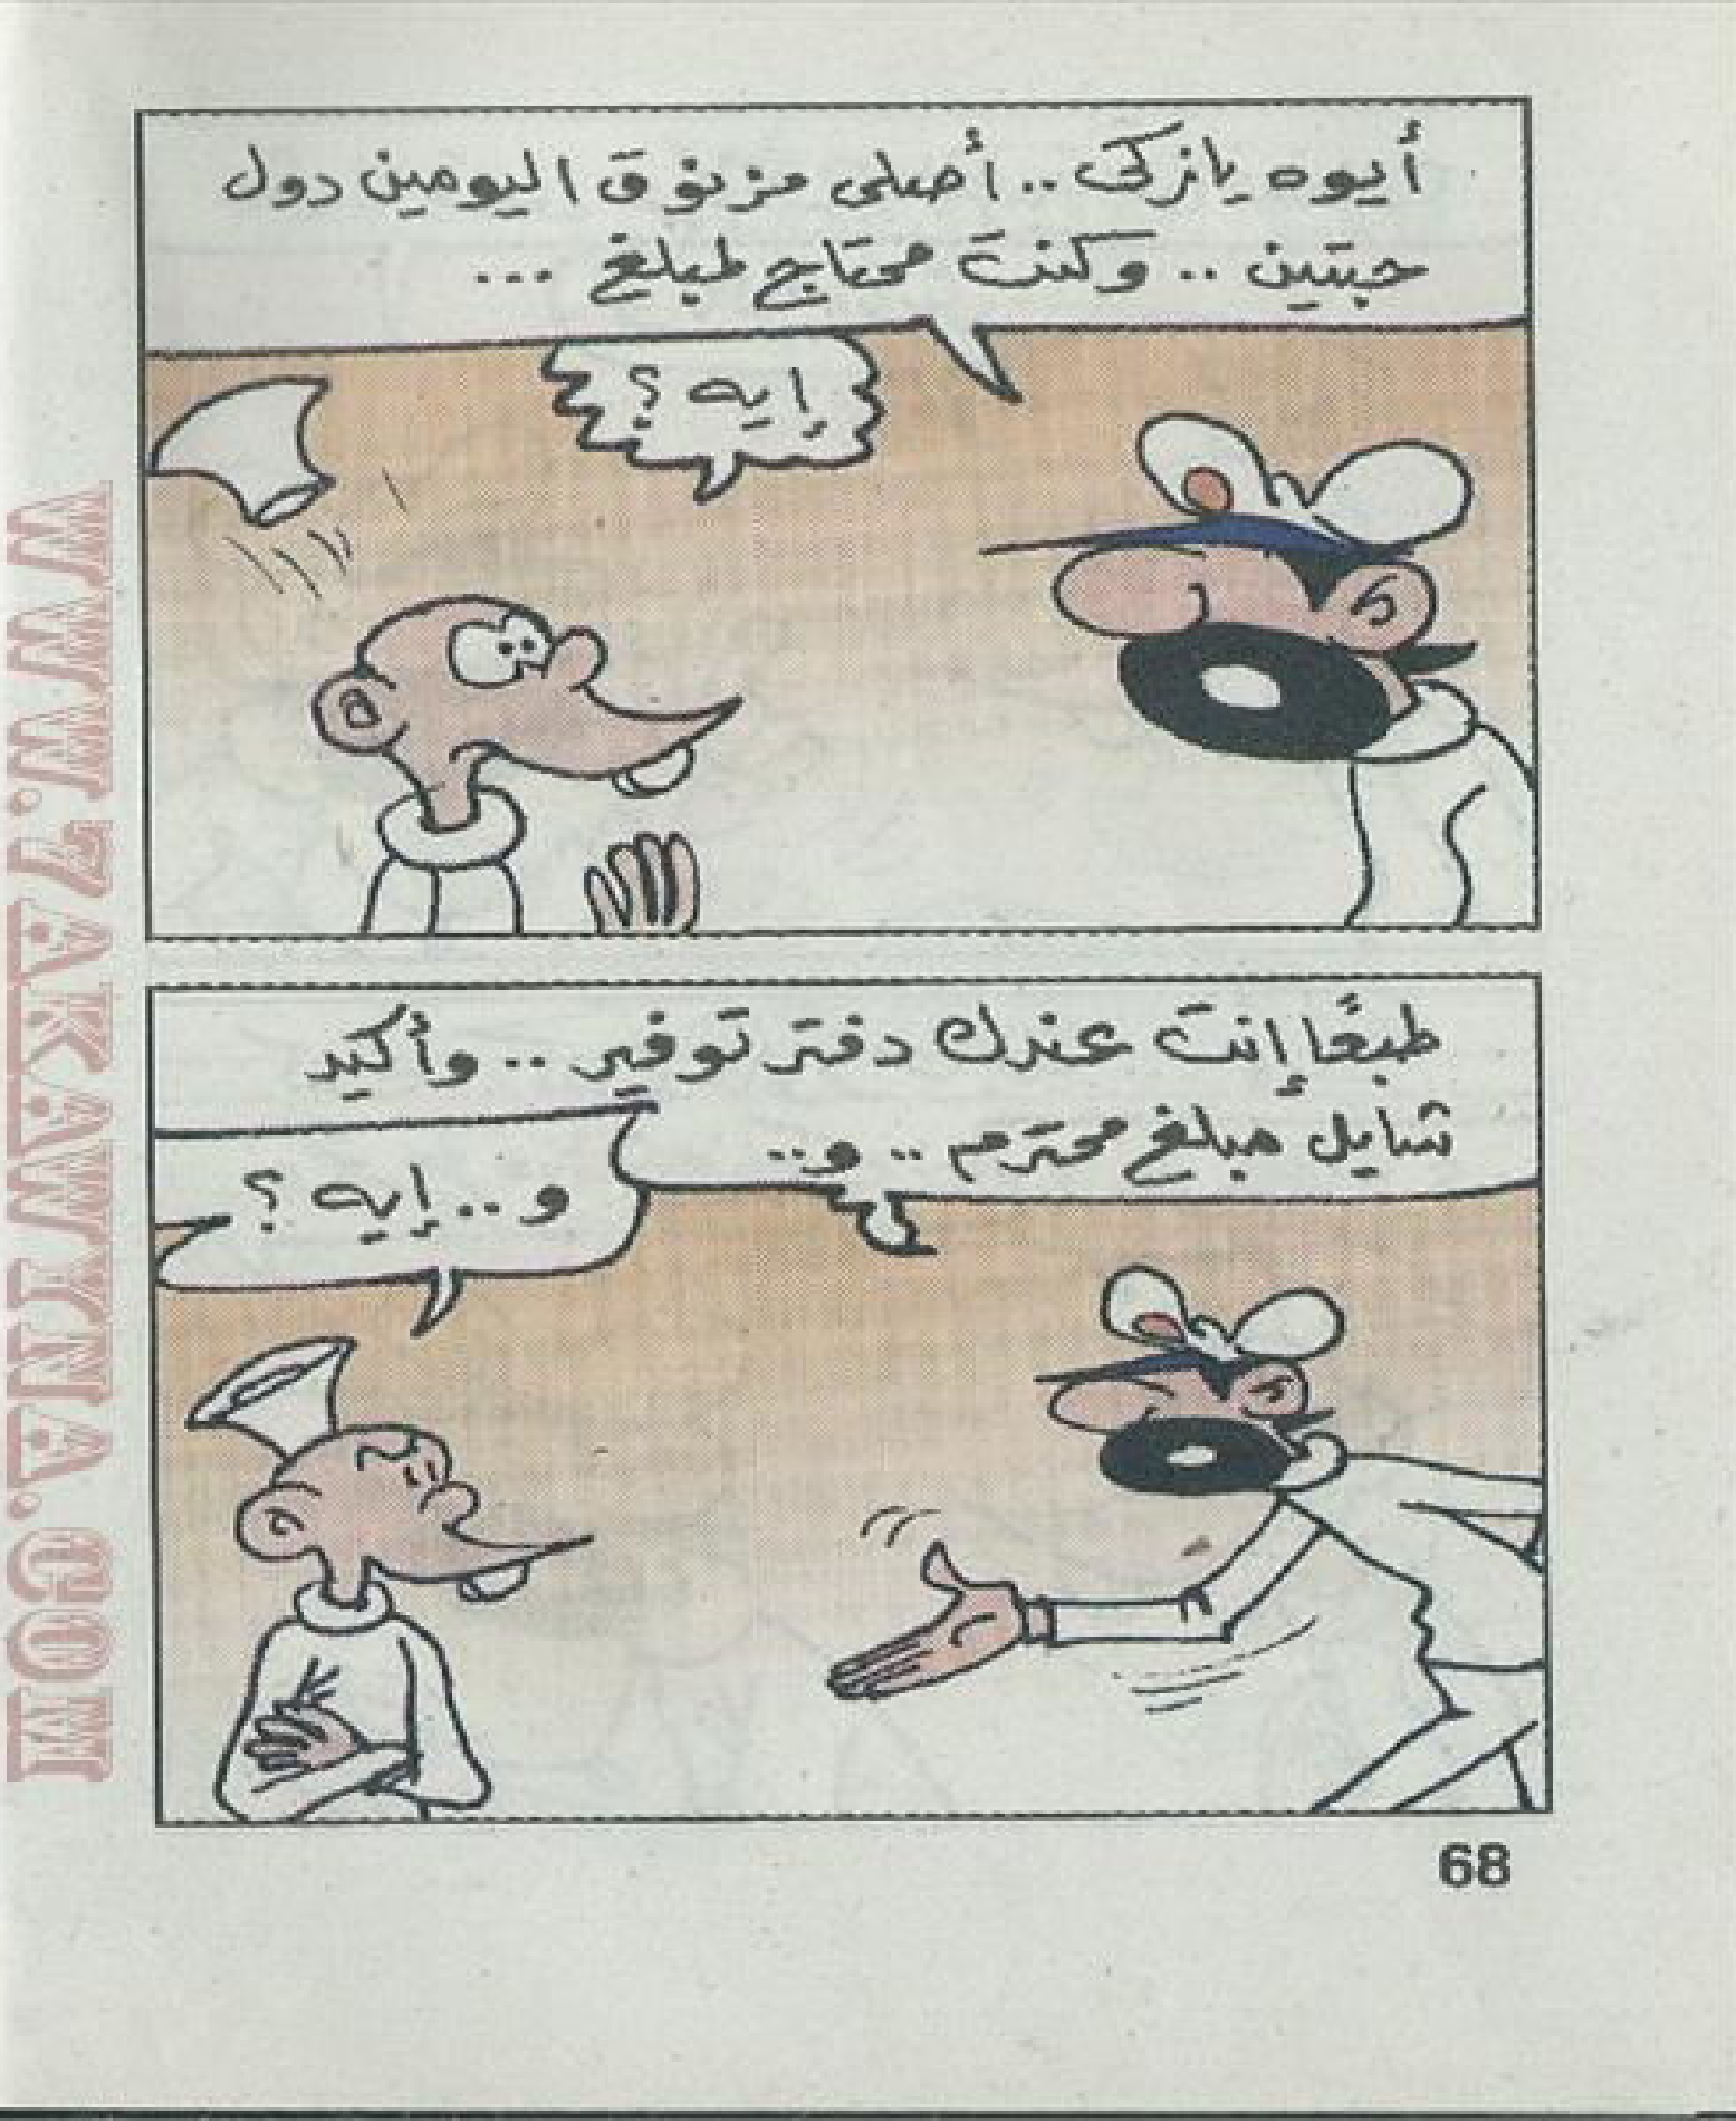 أيوه يا زكى .. أصلى مزنوق اليومين دول
حبتين .. وكنت محتاج لمبلغ ...
إيه ؟
طبعًا إنت عندك دفتر توفير .. وأكيد
شايل مبلغ محترم .. و..
و .. إيه ؟
68
WWW.ZAKAWYNA.COM